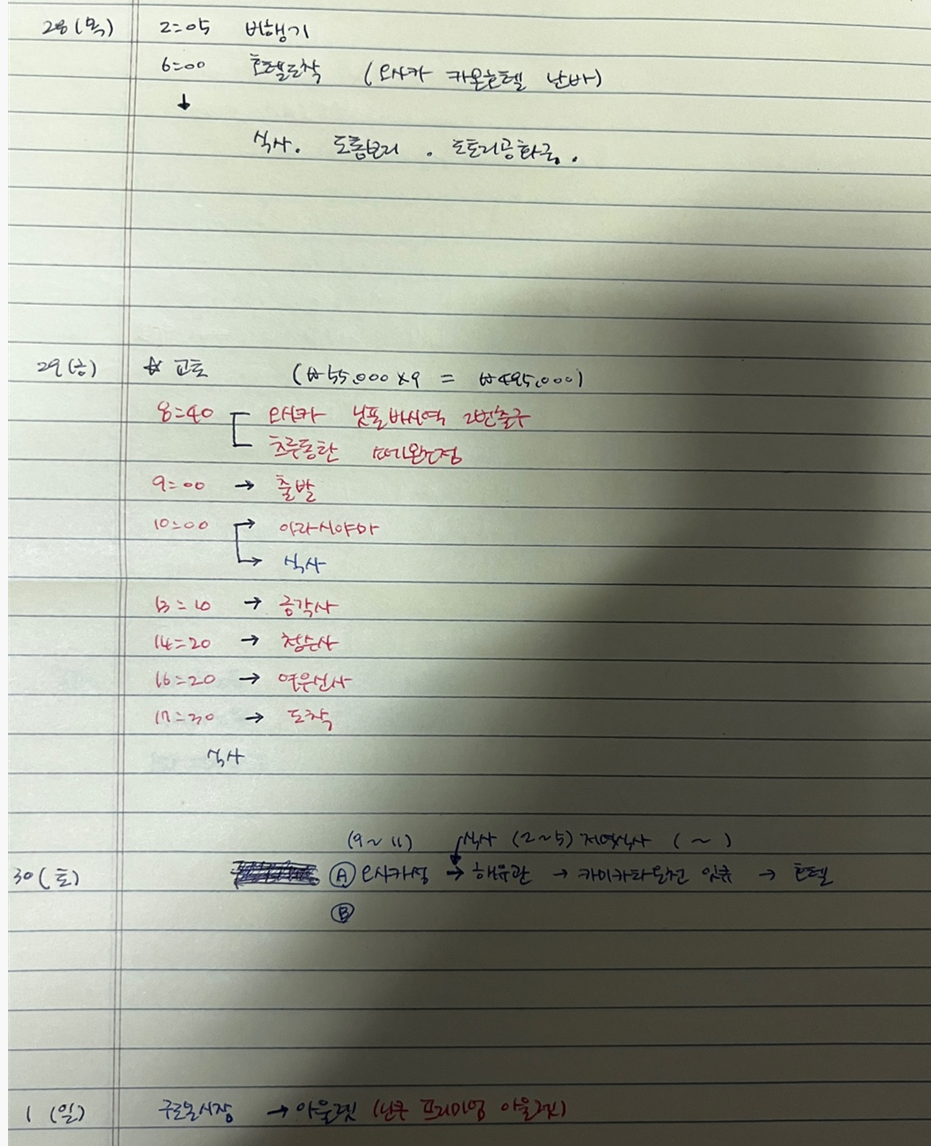 28(목) 2:05 비행기
6:00 호텔도착 (오사카 카온호텔 난바)
↓
식사. 도톰보리. 도토리공화국.
29(금) ☆ 교토 (₩55,000×9 = ₩495,000)
8:40 오사카 닛폰바시역 2번출구
츠루동탄
9:00 → 출발
10:00 → 아라시야마
→ 식사
13:10 → 금각사
14:20 → 청수사
16:20 → 여우신사
17:30 → 도착
식사
(9~11) 식사 (2~5) 저녁식사 (~)
30(토) Ⓐ 오사카성 → 해유관 → 카이카타돈전 잇큐 → 호텔
Ⓑ
1 (일) 구로몬시장 → 아울렛 (린쿠 프리미엄 아울렛)